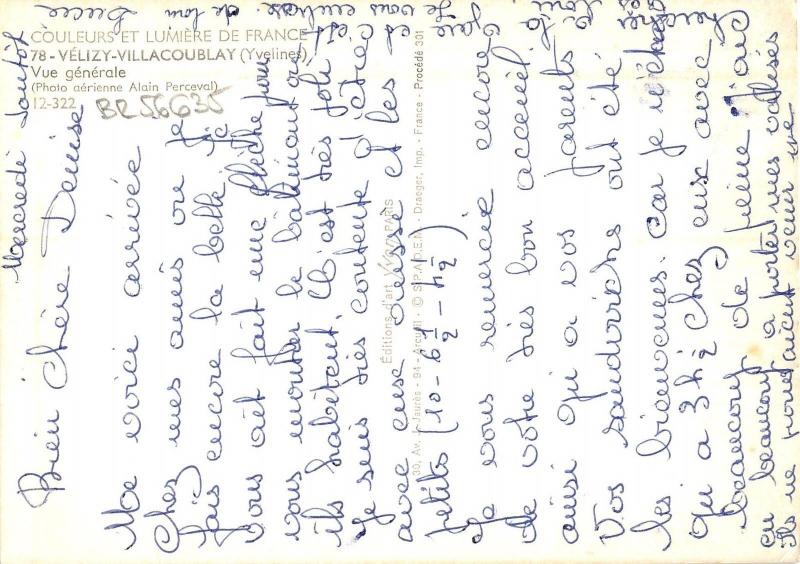 COULEURS ET LUMIÈRE DE FRANCE
78 - VÉLIZY-VILLACOUBLAY (Yvelines)
Vue générale
(Photo aérienne Alain Perceval)
12-322
BR56635
Éditions d'art YVON PARIS
30, Av. J. Jaurès - 94 - Arcueil - © S.P.A.D.E.M. - Draeger, Imp. - France - Procédé 301
Mercredi
Bien Chère Denise
Me voici arrivée
Chez mes amis ou je
fais encore la belle. Je
vous ait fait une flèche pour
vous montrer le batiment ou
ils habitent. C'est très joli et
Je suis très contente d'être ici
avec eux deusse et les
petits (10 - 6 1/2 - 4 1/2)
Je vous remercie encore
de votre très bon accueil
ainsi qu'a vos parents
Vos sandwichs ont été
les bienvenues. Car je
qu'a 3 h 1/2 chez eux avec
beaucoup de peine
eu beaucoup a porter mes valises
Ils ne pouvaient venir me
chercher
Je vous embrasse de loin